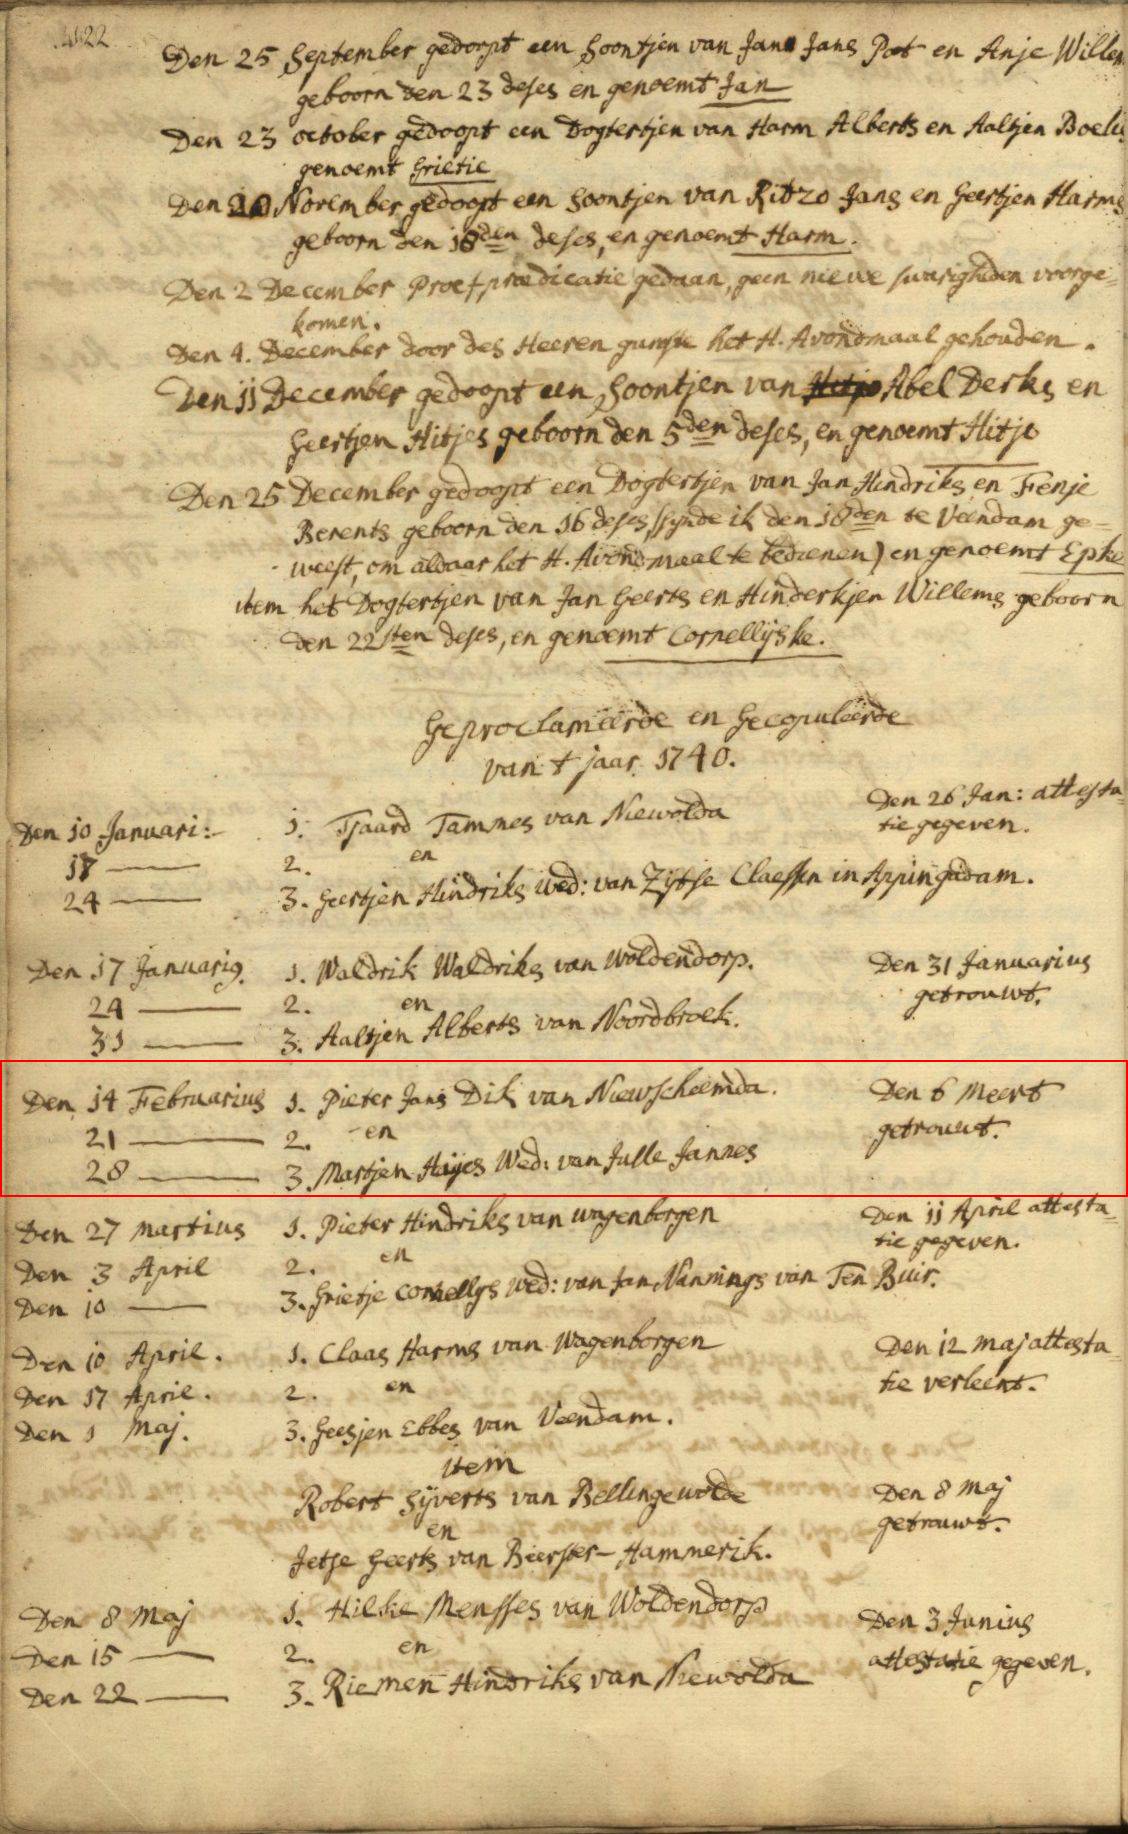 22
Den 25 September gedoopt een Soontjen van Jan Jans Pot en Anje Willem
geboorn den 23 deses en genoemt Jan
Den 23 october gedoopt een Dogtertjen van Harm Alberts en Aaltjen Boelus
genoemt Grietie
Den 20 November gedoopt een Soontjen van Ritzo Jans en Geertjen Harms
geboorn den 18den deses, en genoemt Harm.
Den 2 December Proefpraedicatie gedaan, geen nieuwe swarigheden voorge=
komen.
Den 4. December door des Heeren gunste het H. Avondmaal gehouden.
Den 11 December gedoopt een Soontjen van Abel Derks en
Geertjen Hitjes geboorn den 5den deses, en genoemt Hitjo
Den 25 December gedoopt een Dogtertjen van Jan Hindriks en Fenje
Berents geboorn den 16 deses, (synde ik den 18den te Veendam ge=
weest, om aldaar het H. Avondmaal te bedienen) en genoemt Epke
item het Dogtertjen van Jan Geerts en Hinderkjen Willems geboorn
den 22sten deses, en genoemt Cornellijske.
Geproclameerde en Gecopuleerde
van t jaar 1740.
Den 10 Januari:- 1. Tjaard Tammes van Niewolda Den 26 Jan: attesta=
tie gegeven.
17 2. en
24 3. Geertjen Hindriks wed: van Zijtse Claessen in Appingadam.
Den 17 Januarig. 1. Waldrik Waldriks van Woldendorp. Den 31 Januarius
24 2. en getrouwt.
31 3. Aaltjen Alberts van Noordbroek.
Den 14 Februarius 1. Pieter Jans Dik van Niewscheemda. Den 6 Meert
21 2. en getrouwt.
28 3. Martjen Haijes Wed: van Julle Jannes
Den 27 Martius 1. Pieter Hindriks van wagenborgen Den 11 April attesta=
tie gegeven.
Den 3 April 2. en
Den 10 3. Grietje Cornellys wed: van Jan Nannings van Ten Buir.
Den 10 April. 1. Claas Harms van Wagenborgen Den 12 maj attesta=
Den 17 April. 2. en tie verleent.
Den 1 Maj. 3. Geesjen Ebbes van Veendam.
item
Robert Sijverts van Bellingewolde Den 8 Maj
en getrouwt.
Jetse Geerts van Beerster-Hammerik.
Den 8 Maj 1. Hilke Mensses van Woldendorp Den 3 Junius
Den 15 2. en attestatie gegeven.
Den 22 3. Riemen Hindriks van Niewolda